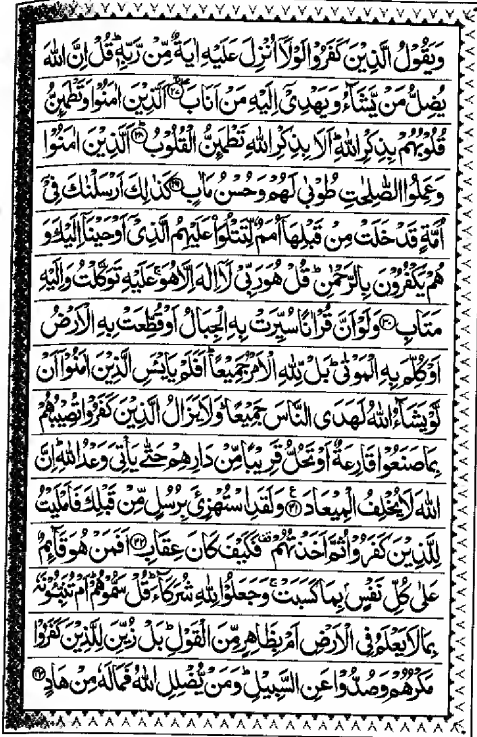 وَيَقُوۡلُ الَّذِيۡنَ كَفَرُوۡا لَوۡلَاۤ اُنۡزِلَ عَلَيۡهِ اٰيَةٌ مِّنۡ رَّبِّهٖ ؕ قُلۡ اِنَّ اللّٰهَ
يُضِلُّ مَنۡ يَّشَآءُ وَيَهۡدِىۡۤ اِلَيۡهِ مَنۡ اَنَابَ ۖۚ ﴿۲۷﴾ اَلَّذِيۡنَ اٰمَنُوۡا وَتَطۡمَئِنُّ
قُلُوۡبُهُمۡ بِذِكۡرِ اللّٰهِ ؕ اَلَا بِذِكۡرِ اللّٰهِ تَطۡمَئِنُّ الۡقُلُوۡبُ ؕ ﴿۲۸﴾ اَلَّذِيۡنَ اٰمَنُوۡا
وَعَمِلُوا الصّٰلِحٰتِ طُوۡبٰى لَهُمۡ وَحُسۡنُ مَاٰبٍ ﴿۲۹﴾ كَذٰلِكَ اَرۡسَلۡنٰكَ فِىۡۤ
اُمَّةٍ قَدۡ خَلَتۡ مِنۡ قَبۡلِهَاۤ اُمَمٌ لِّتَتۡلُوَا۟ عَلَيۡهِمُ الَّذِىۡۤ اَوۡحَيۡنَاۤ اِلَيۡكَ وَ
هُمۡ يَكۡفُرُوۡنَ بِالرَّحۡمٰنِ ؕ قُلۡ هُوَ رَبِّىۡ لَاۤ اِلٰهَ اِلَّا هُوَ ۚ عَلَيۡهِ تَوَكَّلۡتُ وَاِلَيۡهِ
مَتَابِ ﴿۳۰﴾ وَلَوۡ اَنَّ قُرۡاٰنًا سُيِّرَتۡ بِهِ الۡجِبَالُ اَوۡ قُطِّعَتۡ بِهِ الۡاَرۡضُ
اَوۡ كُلِّمَ بِهِ الۡمَوۡتٰى ؕ بَلۡ لِّلّٰهِ الۡاَمۡرُ جَمِيۡعًا ؕ اَفَلَمۡ يَايۡــَٔـسِ الَّذِيۡنَ اٰمَنُوۡۤا اَنۡ
لَّوۡ يَشَآءُ اللّٰهُ لَهَدَى النَّاسَ جَمِيۡعًا ؕ وَلَا يَزَالُ الَّذِيۡنَ كَفَرُوۡا تُصِيۡبُهُمۡ
بِمَا صَنَعُوۡا قَارِعَةٌ اَوۡ تَحُلُّ قَرِيۡبًا مِّنۡ دَارِهِمۡ حَتّٰى يَاۡتِىَ وَعۡدُ اللّٰهِ ؕ اِنَّ
اللّٰهَ لَا يُخۡلِفُ الۡمِيۡعَادَ ﴿۳۱﴾ وَلَقَدِ اسۡتُهۡزِئَ بِرُسُلٍ مِّنۡ قَبۡلِكَ فَاَمۡلَيۡتُ
لِلَّذِيۡنَ كَفَرُوۡا ثُمَّ اَخَذۡتُهُمۡ فَكَيۡفَ كَانَ عِقَابِ ﴿۳۲﴾ اَفَمَنۡ هُوَ قَآئِمٌ
عَلٰى كُلِّ نَفۡسٍۢ بِمَا كَسَبَتۡ ۚ وَجَعَلُوۡا لِلّٰهِ شُرَكَآءَ ؕ قُلۡ سَمُّوۡهُمۡ ؕ اَمۡ تُنَبِّئُوۡنَهٗ
بِمَا لَا يَعۡلَمُ فِى الۡاَرۡضِ اَمۡ بِظَاهِرٍ مِّنَ الۡقَوۡلِ ؕ بَلۡ زُيِّنَ لِلَّذِيۡنَ كَفَرُوۡا
مَكۡرُهُمۡ وَصُدُّوۡا عَنِ السَّبِيۡلِ ؕ وَمَنۡ يُّضۡلِلِ اللّٰهُ فَمَا لَهٗ مِنۡ هَادٍ ﴿۳۳﴾